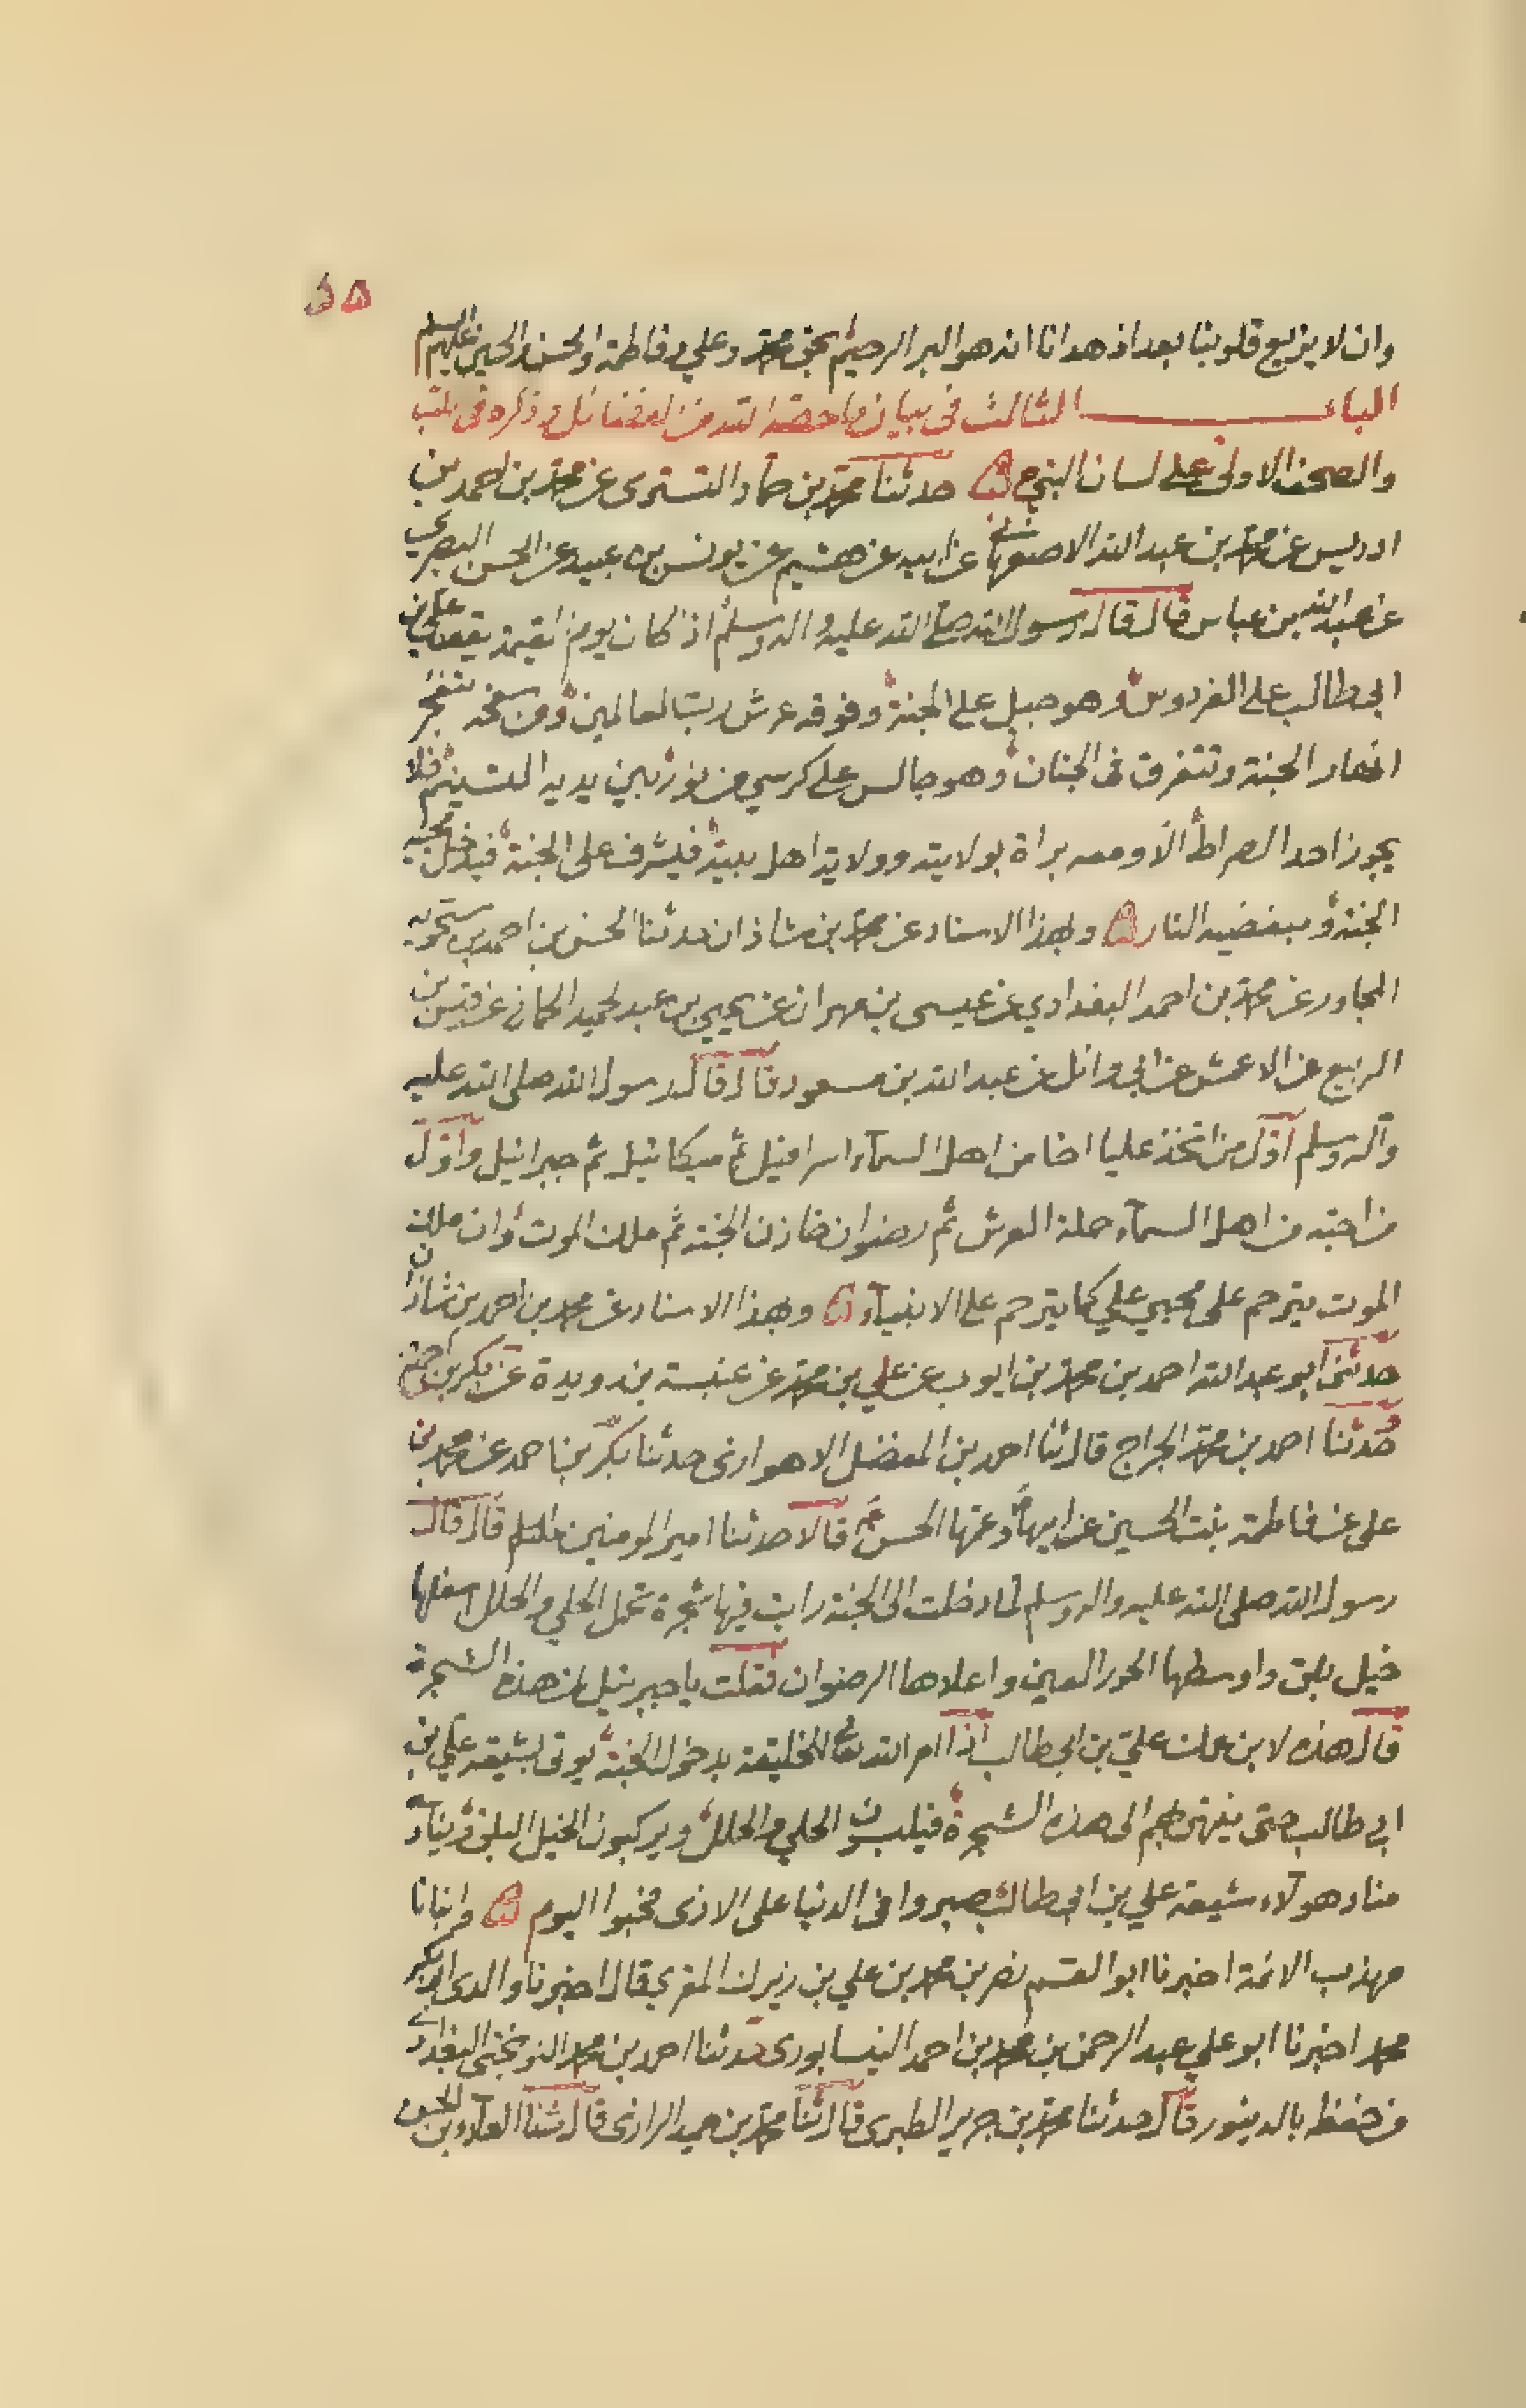 ٥٥
وان لا يزيغ قلوبنا بعد اذ هدانا انه هو البر الرحيم بحق محمد وعلي وفاطمة والحسن والحسين عليهم السلم
الباب الثالث فى بيان ما خصه الله من الفضائل وذكره فى كتب
والصحف الاولى على لسان النبي حدثنا محمد بن حماد التسترى عن محمد بن احمد بن
ادريس عن محمد بن عبد الله الاصفهاني عن ابيه عن هشيم عن يونس بن عبيد عن الحسن البصري
عن عبد الله بن عباس قال قال رسول الله صلى الله عليه واله وسلم اذا كان يوم القيمة يقعد علي بن
ابى طالب على الفردوس وهو جبل على الجنة وفوقه عرش رب العالمين ومن سفحه تتفجر
انهار الجنة وتتفرق فى الجنان وهو جالس على كرسي من نور بين يديه التسنيم فلا
يجوز احد الصراط الا ومعه براة بولايته وولاية اهل بيته فيشرف على الجنة فيدخل محبيه
الجنة ومبغضيه النار وبهذا الاسناد عن محمد بن شاذان حدثنا الحسن بن احمد بن سختويه
المجاور عن محمد بن احمد البغدادي عن عيسى بن مهران عن يحيى بن عبد الحميد الحماني عن قيس بن
الربيع عن الاعمش عن ابي وائل عن عبد الله بن مسعود قال قال رسول الله صلى الله عليه
وآله وسلم اول من اتخذ عليا اخا من اهل السمآء اسرافيل ثم ميكائيل ثم جبرائيل واول
من احبه من اهل السمآء حملة العرش ثم رضوان خازن الجنة ثم ملك الموت وان ملك
الموت يترحم على محبي علي كما يترحم على الانبيآء وبهذا الاسناد عن محمد بن احمد بن شاذان
حدثنى ابو عبد الله احمد بن محمد بن ايوب عن علي بن محمد عن عنبسة بن رويدة عن بكر بن احمد
حدثنا احمد بن محمد الجراح قال ثنا احمد بن المفضل الاهوازى حدثنا بكر بن احمد عن محمد بن
على عن فاطمة بنت الحسين عن ابيها وعمها الحسن قالا حدثنا امير المومنين قال قال
رسول الله صلى الله عليه واله وسلم لما دخلت الى الجنة رايت فيها شجرة تحمل الحلي والحلل اسفلها
خيل بلق واوسطها الحور العين واعلاها الرضوان فقلت يا جبرئيل لمن هذه الشجرة
قال هذه لابن عمك علي بن ابى طالب اذا امر الله الخليقة بدخول الجنة يوتى بشيعة علي بن
ابي طالب حتى ينتهى بهم الى هذه الشجرة فيلبسون الحلي والحلل ويركبون الخيل البلق ويناد
مناد هولآء شيعة علي بن ابي طالب صبروا فى الدنيا على الاذى فحبوا اليوم وانبانا
مهذب الائمة اخبرنا ابو القسم نصر بن محمد بن علي بن زيرك المقري قال اخبرنا والدى ابو بكر
محمد اخبرنا ابو علي عبد الرحمن بن محمد بن احمد النيسابورى حدثنا احمد بن محمد النوبختى البغدادي
من حفظه بالدينور قال حدثنا محمد بن جرير الطبرى قال ثنا محمد بن حميد الرازى قال ثنا العلآء بن الحسين